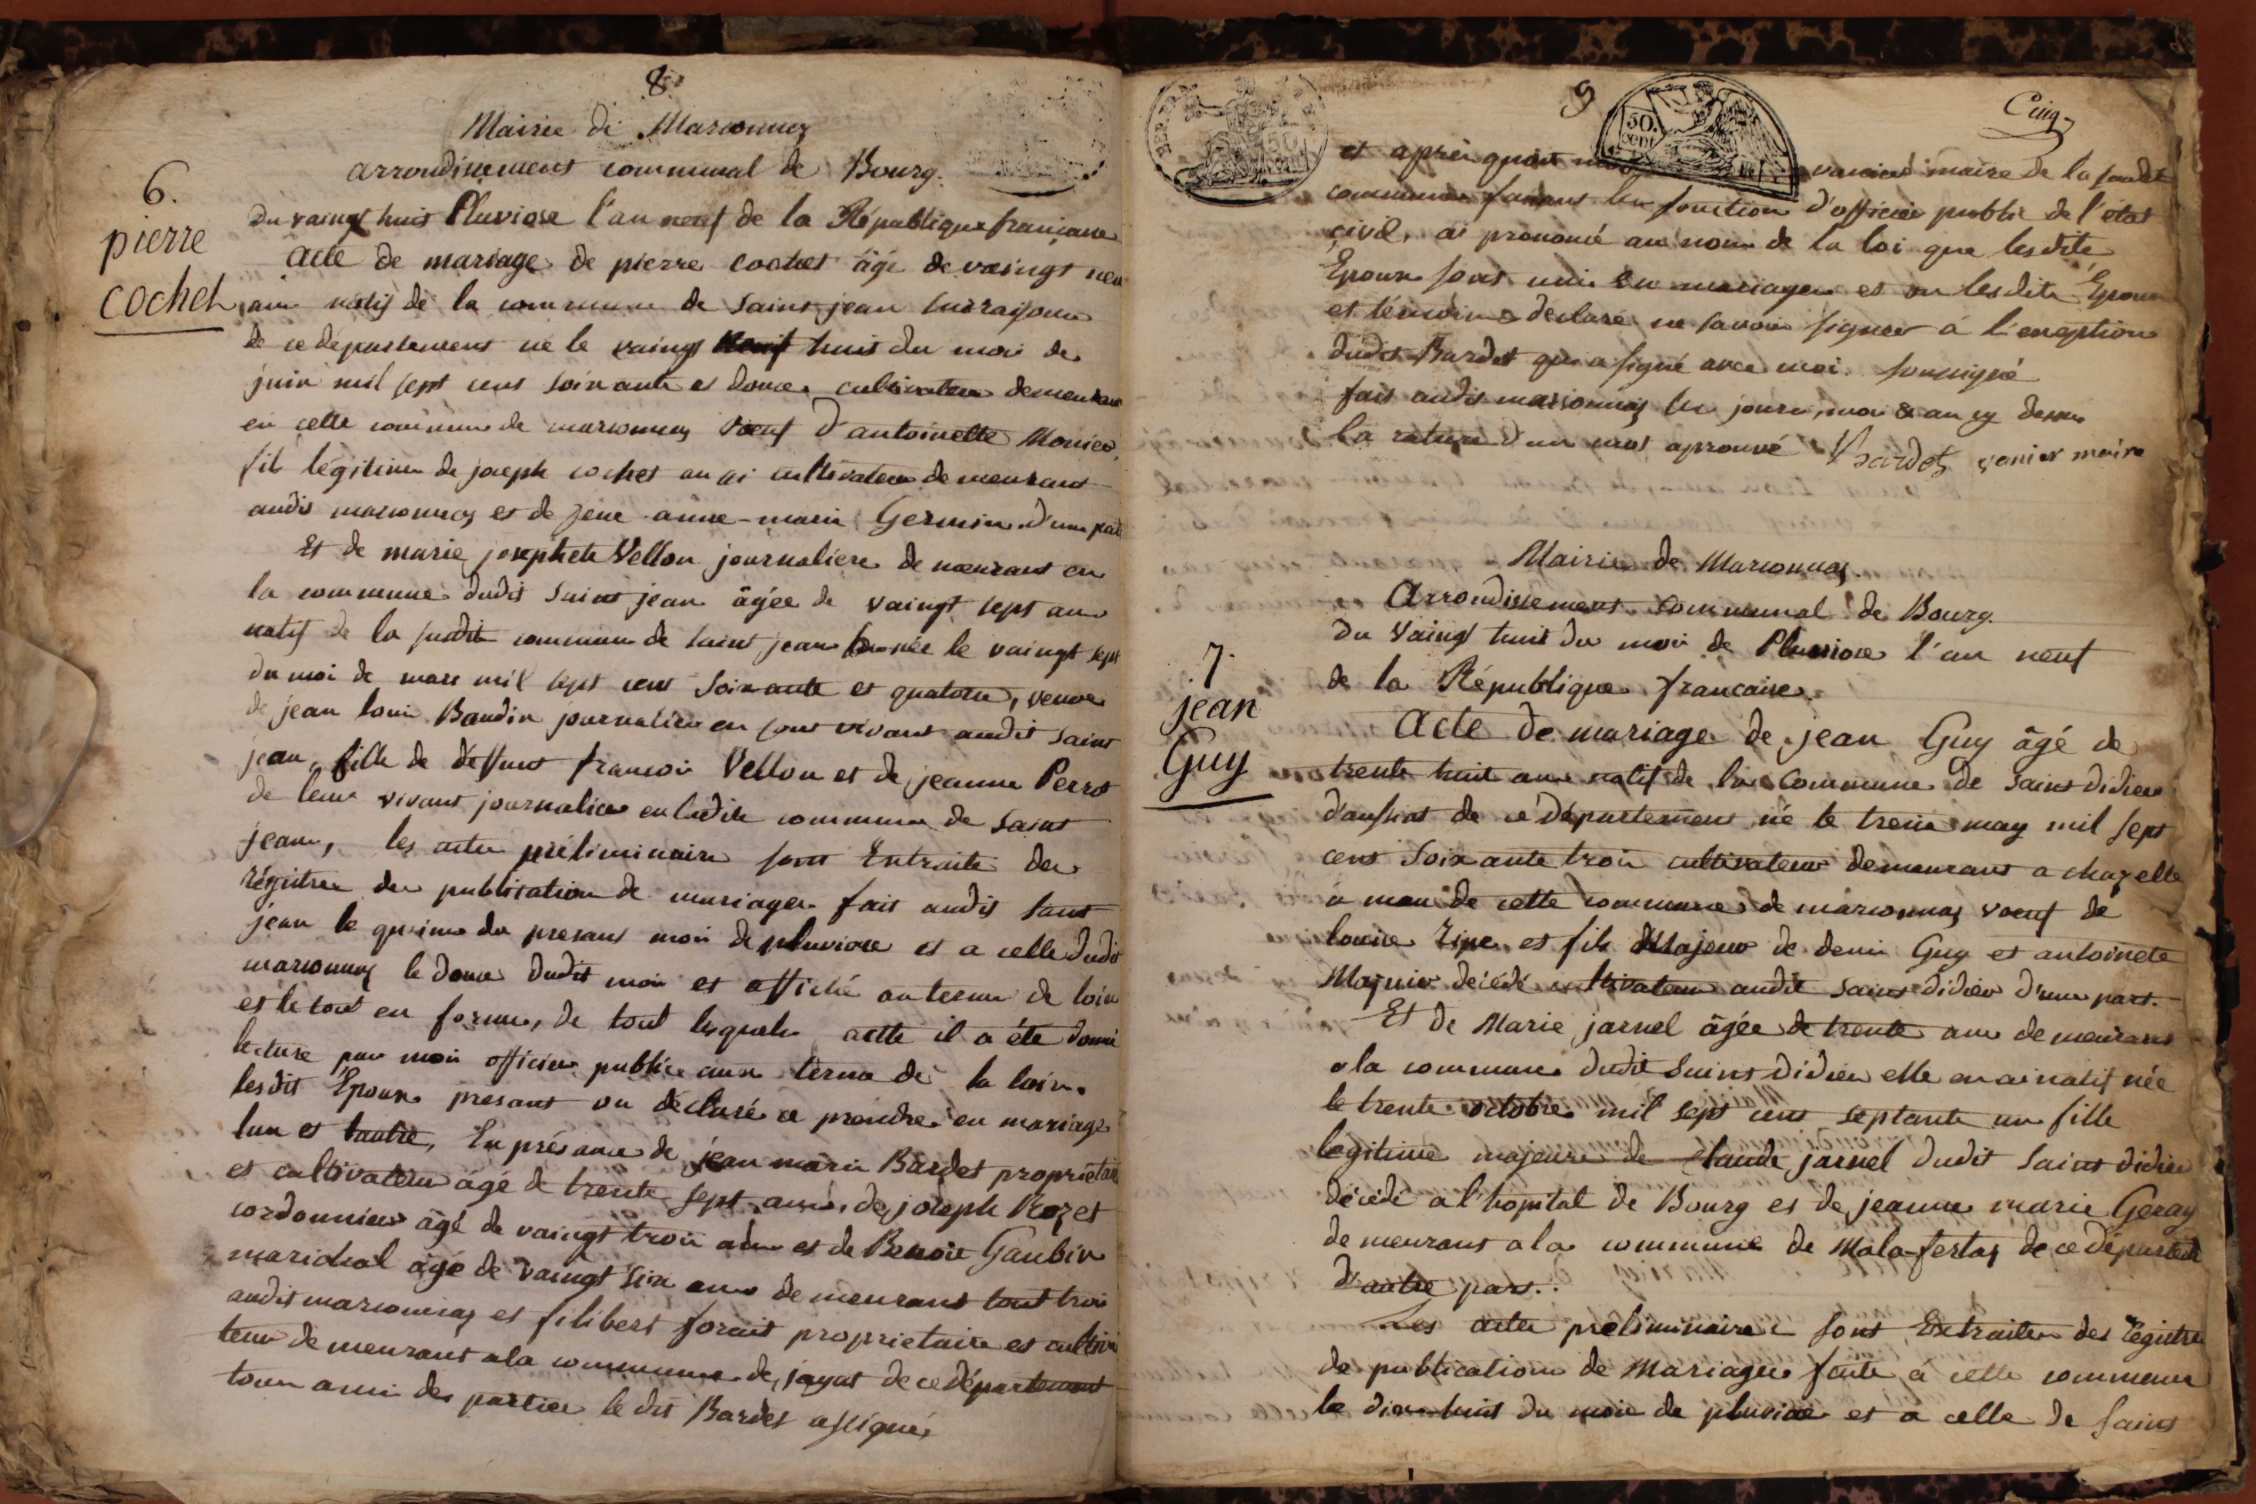 8.
Mairie de Marsonnas
arrondisement communal de Bourg.
6.
pierre
cochet
Du vaingt huit Pluviose l'an neuf de la République française
Acte de mariage de pierre cochet âgé de vaingt neuf
ans natif de la commune de saint jean
de ce departement né le vaingt huit du moi de
juin mil sept cent soixante et douze cultivateur demeurant
en cette commune de marsonnas voeuf d'antoinette Monier
fils légitime de joseph cochet cultivateur demeurant
audit marsonnas et de anne-marie Germin d'une part
Et de marie josephete Vellon journaliere demeurant en
la commune dudit saint jean âgée de vaingt sept ans
natif de la sudit commune de saint jean née le vaingt sept
du moi de mars mil sept cent soixante et quatorze, veuve
de jean loui Baudin journalier en sont vivant audit saint
jean, fille de deffunt francoi Vellon et de jeanne Perrot
de leur vivant journalier en ladite commune de saint
jean, les actes préliminaire sont Extraite des
régistre de publication de mariage fait audit saint
jean le quinze du present moi de pluviose et a celle dudit
marsonnas le douze dudit moi et affiché au terme de loix
et le tout en forme, de tout lesquels actte il a été donné
lecture par moi officier public aux terme de la loix.
lesdit Epoux presant on déclaré ce prendre en mariage
lun et lautre, En présance de jean marie Bardet propriétaire
et cultivateur âgé de trente sept ans, de joseph Rozet
cordonnier âgé de vaingt troi ans et de Benoit Gaubin
marichal âgé de vaingt six ans demeurant tout troi
audit marsonnas et filibert forait proprietaire et cultiva
teur demeurant a la commune de jayat de ce département
tous ami des parties le dit Bardet a signé
9
Cinq
50.
cent
et après quoi moi vanier maire de la sudit
commune faisant les fonction d'officier public de l'état
civil, ai prononcé au nom de la loi que lesdits
Epoux sont uni en mariage et on lesdits Epoux
et témoins declaré ne savoir signer à l'exeption
dudit Bardet qui a signé avec moi soussigné
fait audit marsonnas les jours, moi & an cy dessus
la rature d'un mot aprouvé Bardet vanier maire
Mairie de Marsonnas.
Arrondissement communal de Bourg.
7.
jean
Guy
Du Vaingt huit du moi de Pluviose l'an neuf
de la République francaise.
Acte de mariage de jean Guy âgé de
trente huit ans natif de la Commune de saint didier
d'aussiat de ce Département né le treize may mil sept
cent soixante troi cultivateur demeurant a chazelle
de cette commune de marsonnas voeuf de
louise et fils Majeur de deni Guy et antoinete
décédé cultivateur audit saint didier d'une part.
Et de Marie jarnel âgée de trente ans demeurant
a la commune dudit saint didier elle en ai natif née
le trente octobre mil sept cent septante un fille
legitime majeure de claude jarnel dudit saint didier
décédé a l'hopital de Bourg et de jeanne marie Geray
demeurant a la commune de Mala-fertas de ce département
d'autre part.
Les actes préliminaire sont Extraites des régistre
de publication de Mariages faite à cette commune
le dix huit du moi de pluviose et a celle de saint